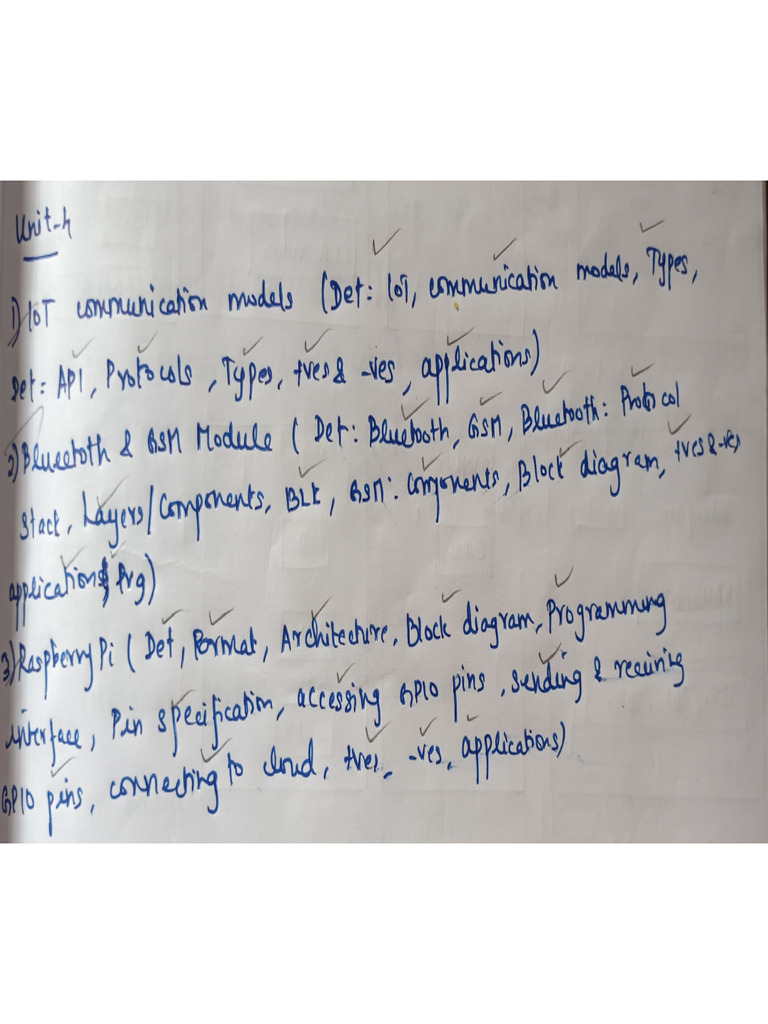 Unit-4
1) IOT communication models (Def: IOT, communication models, Types,
Def: API, Protocols, Types, +ves & -ves, applications)
2) Blueetoth & GSM Module (Def: Bluetooth, GSM, Bluetooth: Protocol
Stack, Layers/Components, BLE, GSM: Components, Block diagram, +ves & -ves
applications, Prg)
3) Raspberry Pi (Def, Format, Architecture, Block diagram, Programming
interface, Pin specification, accessing GPIO pins, sending & receiving
GPIO pins, connecting to cloud, +ves, -ves, applications)